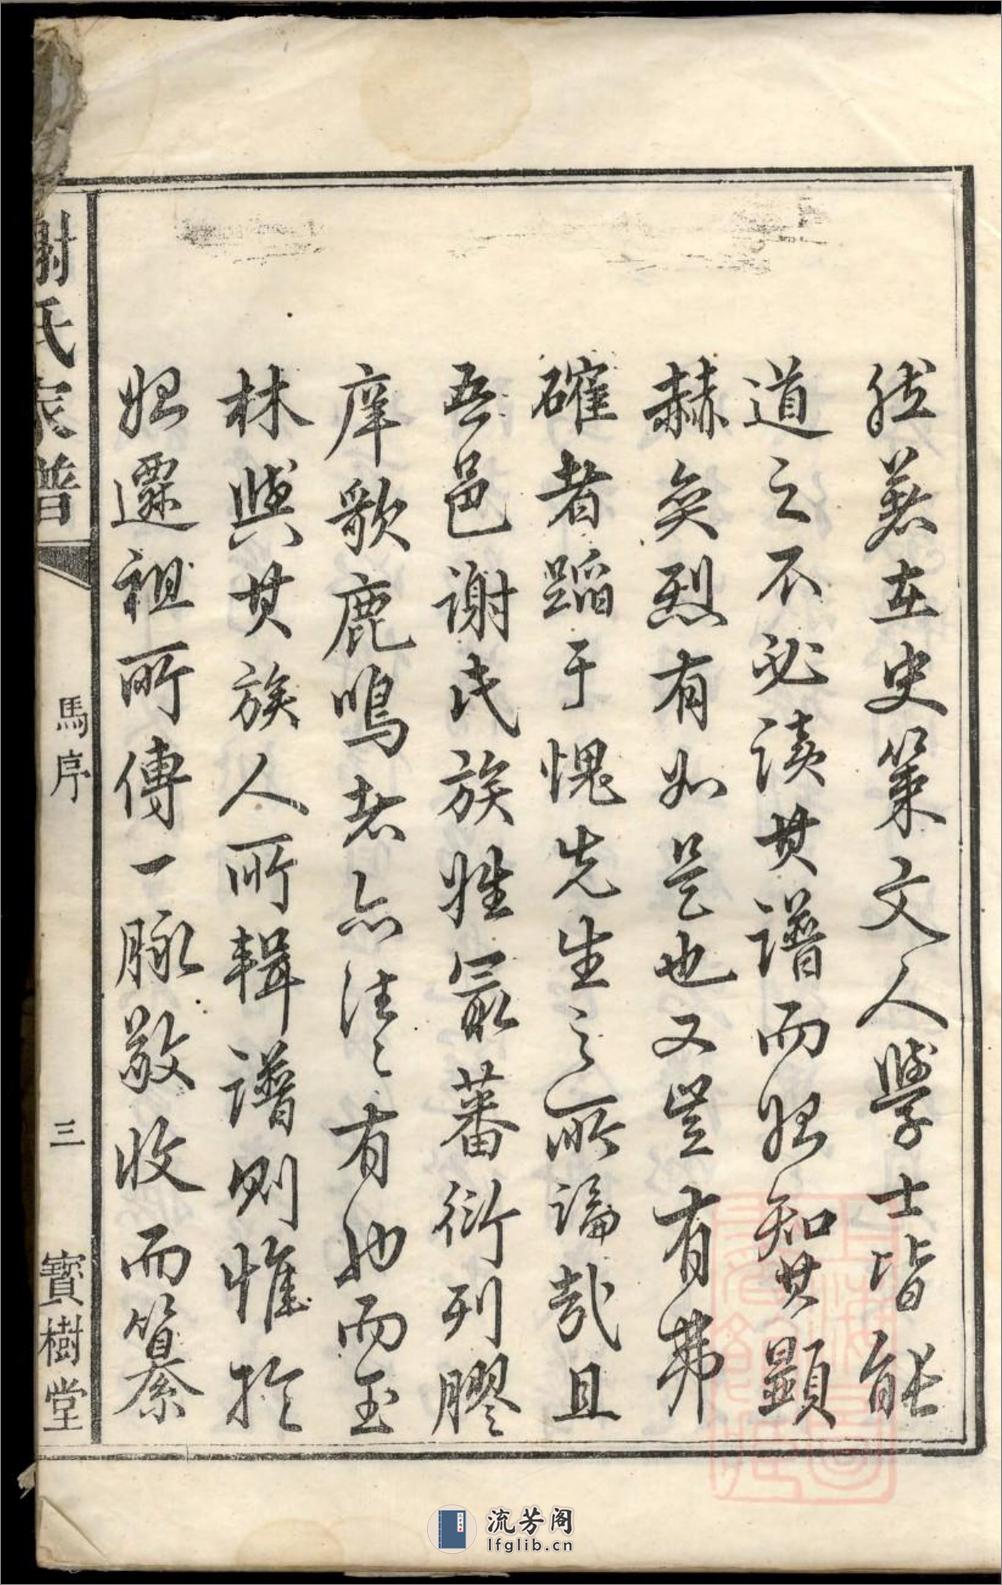 然若在史策文人學士皆能
道之不必讀其譜而始知其顯
赫奕烈有如是也又豈有弗
確者蹈于愧先生之所論哉且
吾邑謝氏族姓最蕃衍列膠
庠歌鹿鳴者亦往往有也而至
林與其族人所輯譜則惟於
始遷祖所傳一脉敬收而纂
謝氏家譜
馬序
三
寳樹堂
流芳阁
lfglib.cn